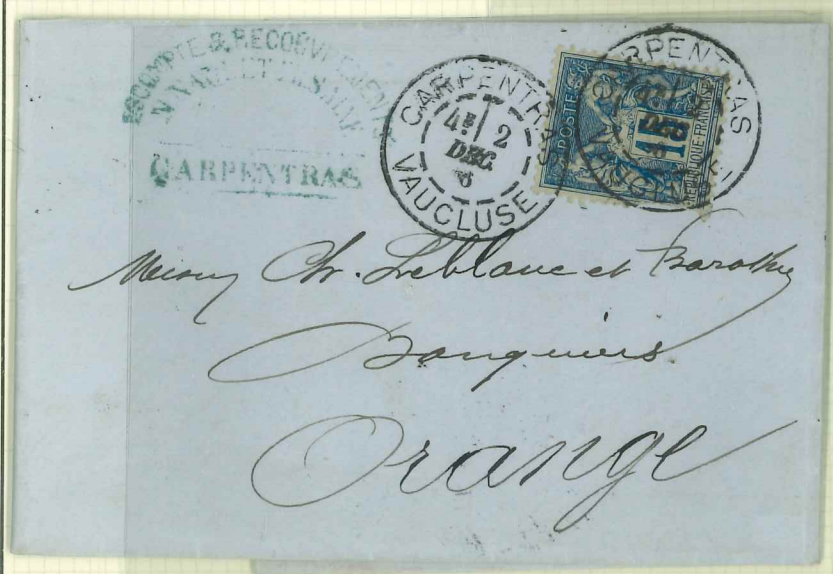 ESCOMPTE & RECOUVREMENTS
CARPENTRAS
CARPENTRAS
4E 2
DEC.
VAUCLUSE
CARPENTRAS
POSTES
15
REPUBLIQUE FRANCAISE
Ch. Leblanc et
Banquiers
Orange